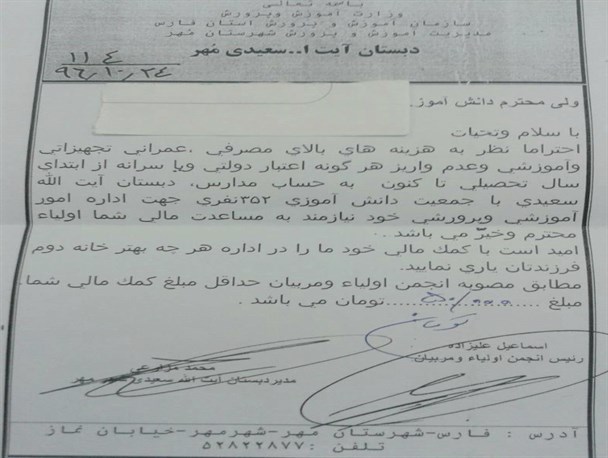 باسمه تعالی
وزارت آموزش وپرورش
سازمان آموزش و پرورش استان فارس
مدیریت آموزش و پرورش شهرستان مهر
دبستان آیت ا..سعیدی مُهر
۱۱۴
۹۶/۱۰/۲۴
ولی محترم دانش آموز
با سلام وتحیات
احتراما نظر به هزینه های بالای مصرفی ،عمرانی تجهیزاتی
وآموزشی وعدم واریز هر گونه اعتبار دولتی ویا سرانه از ابتدای
سال تحصیلی تا کنون به حساب مدارس، دبستان آیت الله
سعیدی با جمعیت دانش آموزی ۳۵۲نفری جهت اداره امور
آموزشی وپرورشی خود نیازمند به مساعدت مالی شما اولیاء
محترم وخیّر می باشد .
امید است با کمك مالی خود ما را در اداره هر چه بهتر خانه دوم
فرزندتان یاری نمایید.
مطابق مصوبه انجمن اولیاء ومربیان حداقل مبلغ کمك مالی شما
مبلغ ......۵۰/۰۰۰......تومان می باشد .
تومان
اسماعیل علیزاده
رئیس انجمن اولیاء ومربیان
محمد
مدیردبستان آیت الله سعیدی مهر
آدرس : فارس-شهرستان مهر-شهرمهر-خیابان نماز
تلفن :۵۲۸۲۲۸۷۷